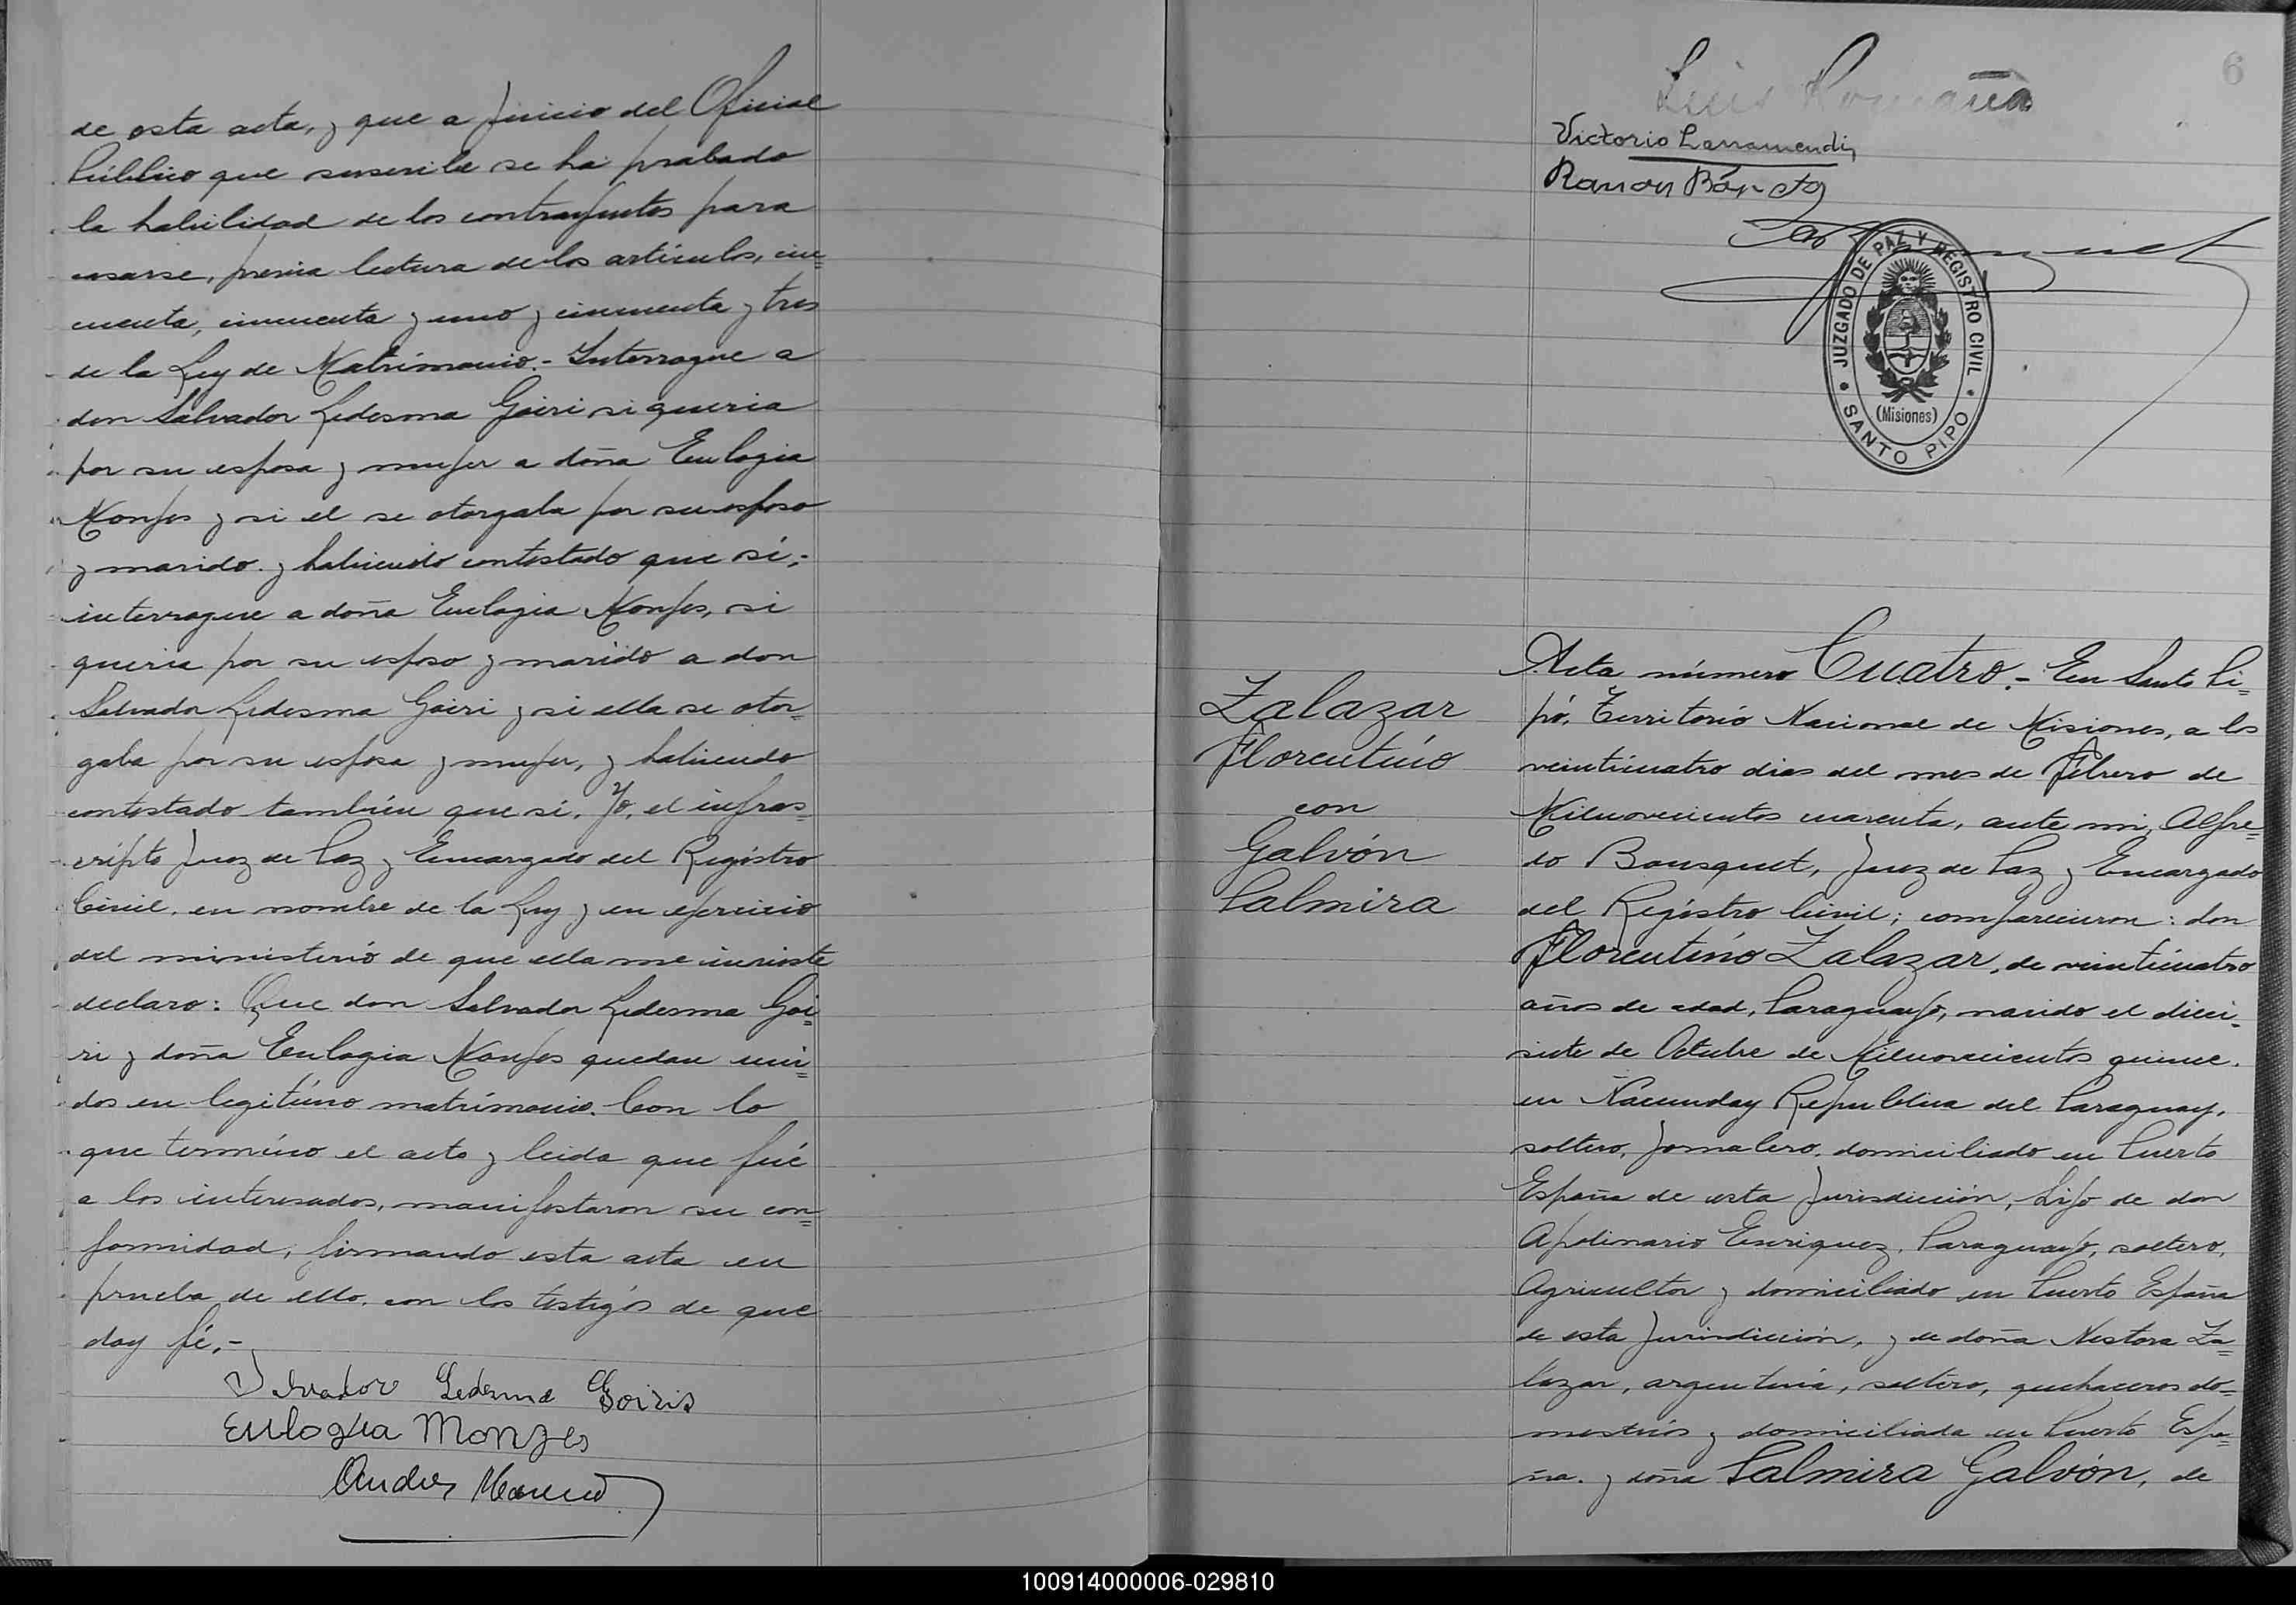 de esta acta, y que a juicio del Oficial
Público que suscribe se ha probado
la habilidad de los contrayentes para
casarse, previa lectura de los artículos, cin=
cuenta, cincuenta y uno y cincuenta y tres
de la Ley de Matrimonio.- Interrogue a
don Salvador Ledesma Goiri si queria
por su esposa y mujer a doña Eulogia
Monjes y si el se otorgaba por su esposo
y marido. y habiendo contestado que si;-
interrogue a doña Eulogia Monjes, si
queria por su esposo y marido a don
Salvador Ledesma Goiri y si ella se otor=
gaba por su esposa y mujer, y habiendo
contestado también que si. Yo, el infras=
cripto Juez de Paz y Encargado del Registro
Civil, en nombre de la Ley y en ejercicio
del ministerio de que ella me inviste
declaro: Que don Salvador Ledesma Goi=
ri y doña Eulogia Monjes quedan uni=
dos en legitimo matrimonio. Con lo
que terminó el acto y leida que fué
a los interesados, manifestaron su con=
formidad, firmando esta acta en
prueba de ello, con los testigos de que
doy fé.-
Salvador Ledesma Goiris
Eulogia Monzes
Andres
6
Luis Romaña
Victorio Larramendi
Ramon
JUZGADO DE PAZ Y REGISTRO CIVIL
(Misiones)
SANTO PIPO
Zalazar
Florentino
con
Galvón
Palmira
Acta número Cuatro.- En Santo Pi=
pó, Territorio Nacional de Misiones, a los
veinticuatro dias del mes de Febrero de
Milnovecientos cuarenta, ante mi, Alfre=
do Bousquet, Juez de Paz y Encargado
del Registro Civil; comparecieron: don
Florentino Zalazar, de veinticuatro
años de edad, Paraguayo, nacido el dieci=
siete de Octubre de Milnovecientos quince,
en Ñacunday Republica del Paraguay,
soltero, jornalero, domiciliado en Puerto
España de esta Jurisdicción, hijo de don
Apolinario Enriquez, Paraguayo, soltero,
Agricultor y domiciliado en Puerto España
de esta Jurisdicción, y de doña Nestora Za=
lazar, argentina, soltera, quehaceres do=
mesticos y domiciliada en Puerto Espa=
ña. y doña Palmira Galvón, de
100914000006-029810